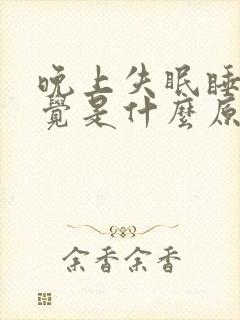 晚上失眠睡
覺是什麼原
余香余香